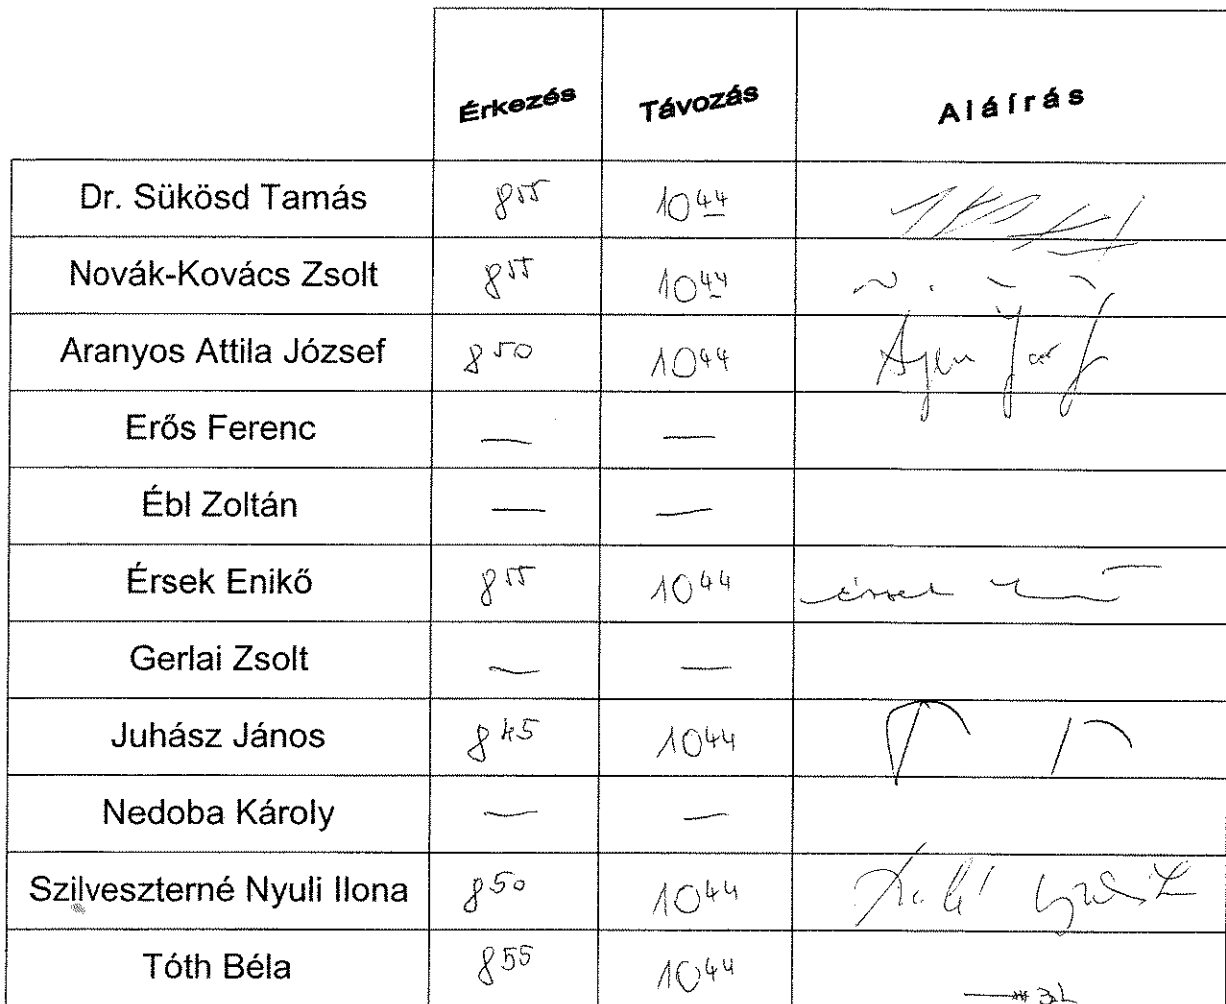 Érkezés Távozás Aláírás
Dr. Sükösd Tamás 8 55 10 44
Novák-Kovács Zsolt 8 55 10 44
Aranyos Attila József 8 50 10 44
Erős Ferenc — —
Ébl Zoltán — —
Érsek Enikő 8 55 10 44 Érsek
Gerlai Zsolt — —
Juhász János 8 45 10 44
Nedoba Károly — —
Szilveszterné Nyuli Ilona 8 50 10 44
Tóth Béla 8 55 10 44